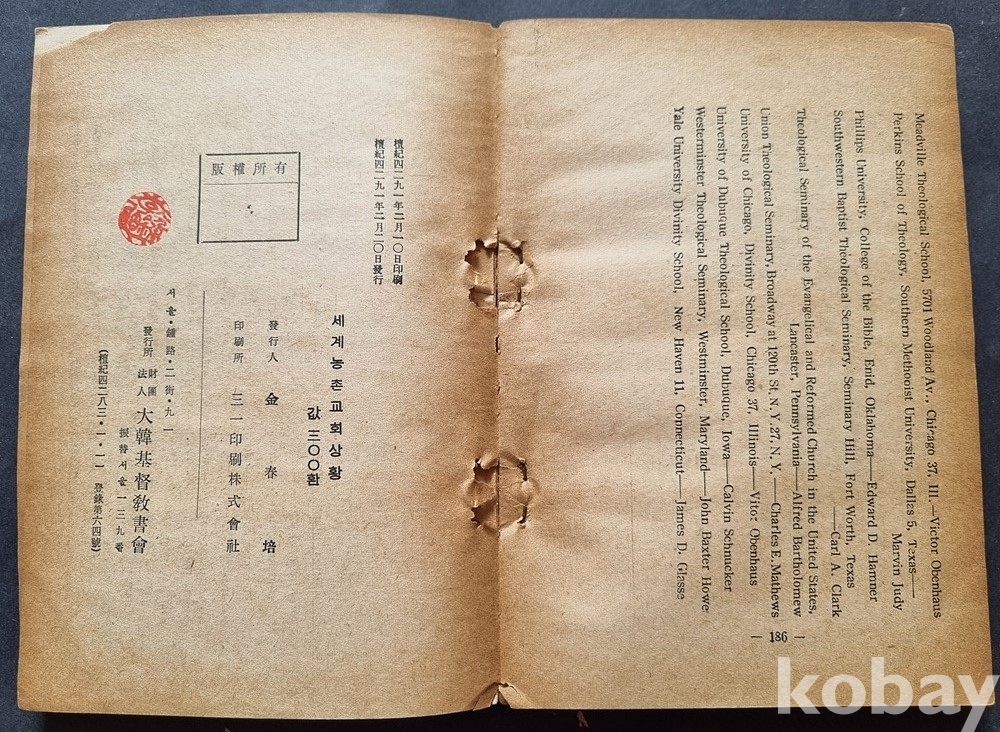 Meadville Theological School, 5701 Woodland Av., Chicago 37, Ill.—Victor Obenhaus
Perkins School of Theology, Southern Methooist University, Dallas 5, Texas——
Marvin Judy
Phillips University, College of the Bible, Enid, Oklahoma——Edward D. Hamner
Southwestern Baptist Theological Seminary, Seminary Hill, Fort Worth, Texas
——Carl A. Clark
Theological Seminary of the Evangelical and Reformed Church in the United States,
Lancaster, Pennsylvania——Alfred Bartholomew
Union Theological Seminary, Broadway at 120th St. N. Y. 27. N. Y.——Charles E. Mathews
University of Chicago, Divinity School, Chicago 37, Illinois——Vitor Obenhaus
University of Dubuque Theological School, Dubuque, Iowa——Calvin Schnucker
Westerminster Theological Seminary, Westminster, Maryland——John Baxter Howe
Yale University Divinity School, New Haven 11, Connecticut——James D. Glasse
— 186 —
檀紀四二九一年二月一〇日印刷
檀紀四二九一年二月二〇日發行
세계농촌교회상황
값 三〇〇환
版權所有
發行人 金春培
印刷所 三一印刷株式會社
서울・鍾路・二街・九一
發行所 財團法人 大韓基督敎書會
振替서울一三九番
(檀紀四二八三・一・一一 登錄第六四號)
kobay